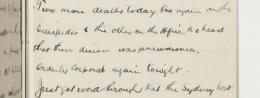 Two more deaths today one again on the
Euripides & the other on the Afric. We heard
that their disease was pneumonia.
Orderly Corporal again tonight.
Just got word through that the Sydney lost